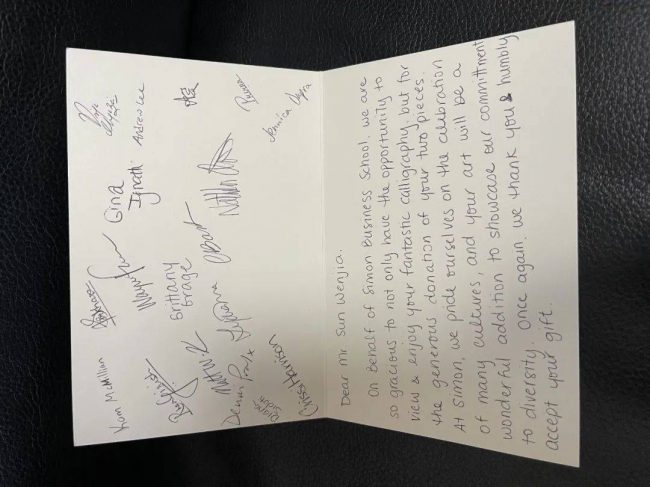 Kam McMillan
Gina
Ignatti
Andrea Lee
Brittany
Brage
Jessica
Chris Harrison
Dear Mr Sun Wenjia.
On behalf of Simon Business School. we are
so gracious to not only have the opportunity to
view & enjoy your fantastic calligraphy. but for
the generous donation of your two pieces.
At Simon, we pride ourselves on the celebration
of many cultures, and your art will be a
wonderful addition to showcase our committment
to diversity. Once again. we thank you & humbly
accept your gift.